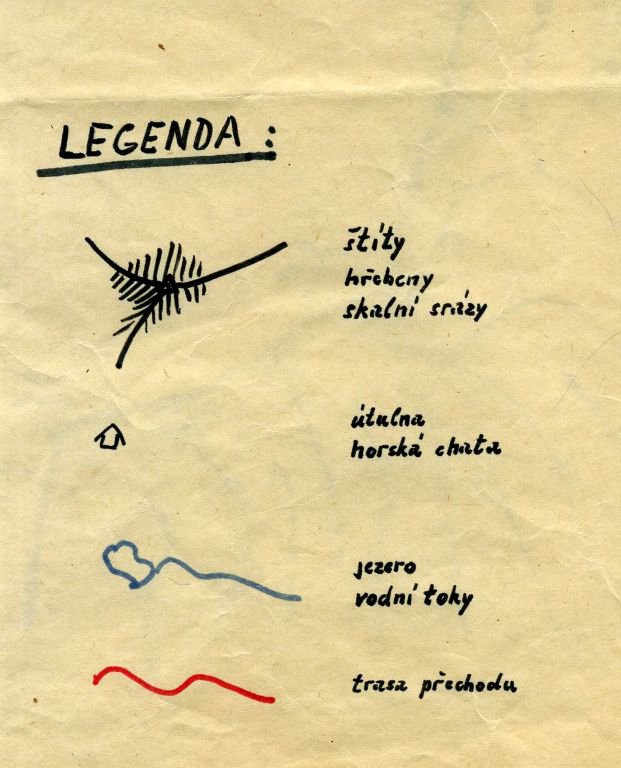 LEGENDA :
štíty
hřebeny
skalní srázy
útulna
horská chata
jezero
vodní toky
trasa přechodu